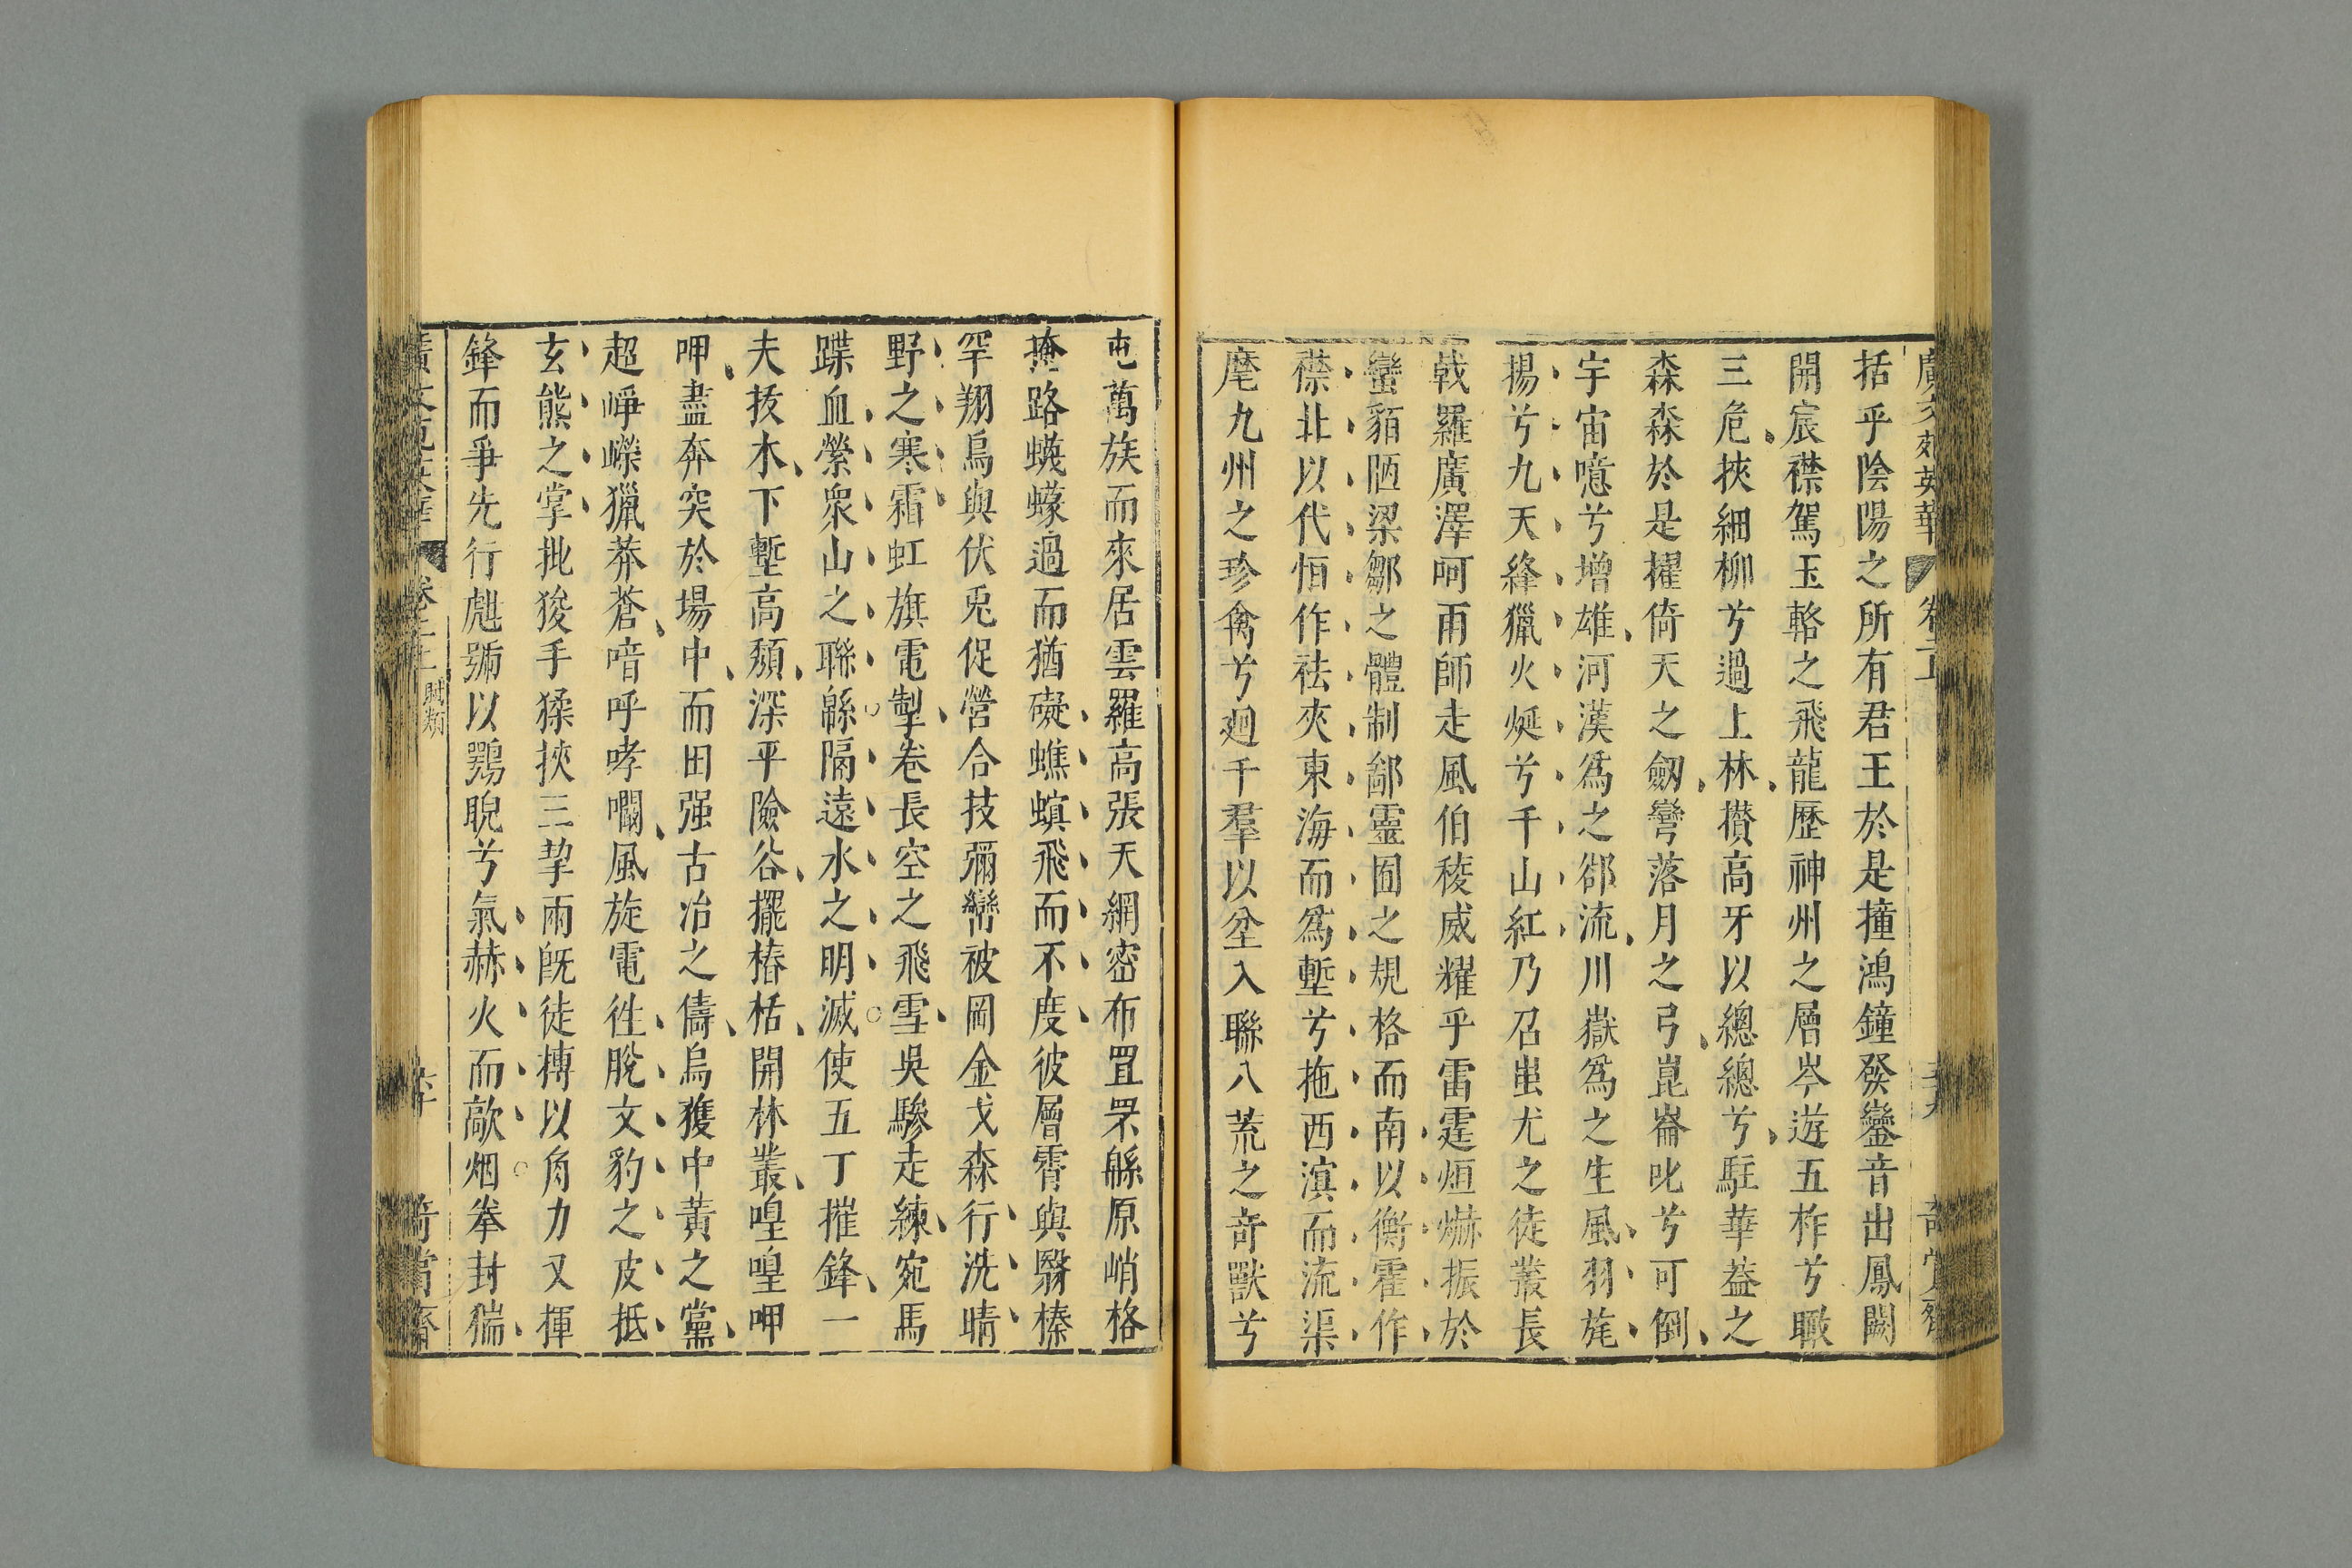 廣文苑英華
奇賞齋
括乎陰陽之所有君王於是撞鴻鐘發鑾音出鳳闕
開宸襟駕玉輅之飛龍歷神州之層岑遊五柞兮瞰
三危挾細柳兮過上林攅高牙以總總兮駐華葢之
森森於是擢倚天之劒彎落月之弓崑崙叱兮可倒
宇宙噫兮增雄河漢為之郤流川嶽為之生風羽旄
揚兮九天絳獵火烻兮千山紅乃召蚩尤之徒叢長
戟羅廣澤呵雨師走風伯稜威耀乎雷霆烜爀振於
蠻貊陋梁鄒之體制鄙靈囿之規格而南以衡霍作
襟北以代恒作袪夾東海而為塹兮拖西溟而流渠
麾九州之珍禽兮廻千羣以坌入聯八荒之奇獸兮
屯萬族而來居雲羅高張天網密布罝罘緜原峭格
掩路蠛蠓過而猶礙蟭螟飛而不度彼層霄與翳榛
罕翔鳥與伏兎促營合技彌巒被岡金戈森行洗晴
野之寒霜虹旗電掣卷長空之飛雪吳驂走練宛馬
蹀血縈衆山之聯緜隔遠水之明滅使五丁摧鋒一
夫拔木下塹高頹深平險谷擺樁栝開林叢喤喤呷
呷盡奔突於場中而田强古冶之儔烏獲中黃之黨
超崢嶸獵莽蒼喑呼哮㘚風旋電徃脫文豹之皮抵
玄熊之掌批狻手猱挾三挈兩旣徒搏以角力又揮
鋒而爭先行甝號以鶚睨兮氣赫火而歊烟拳封猯
賦類